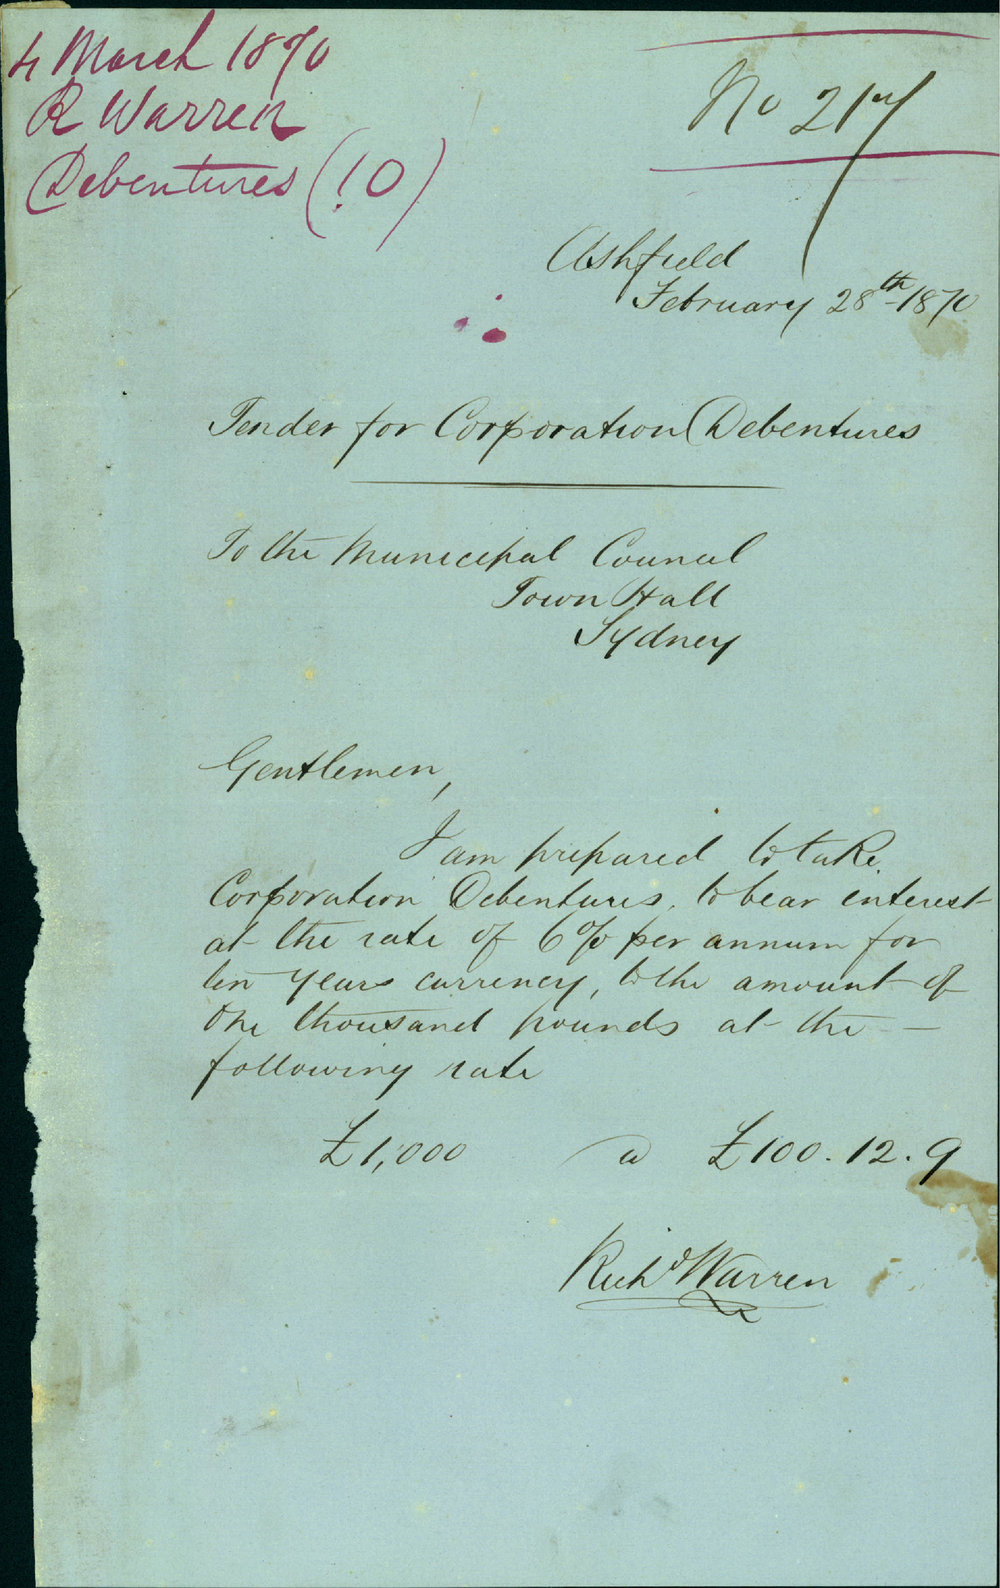 4 March 1870
R Warren
Debentures (10)
No 217
Ashfield
February 28th 1870
Tender for Corporation Debentures
To the Municipal Council
Town Hall
Sydney
Gentlemen,
I am prepared to take
Corporation Debentures, to bear interest
at the rate of 6% per annum for
ten years currency, to the amount of
One thousand pounds at the —
following rate
£1,000 @ £100.12.9
Richd Warren